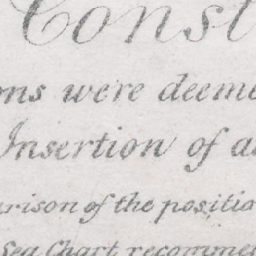 Const
ons were deeme
Insertion of a
arison of the positio
Sea Chart recomme